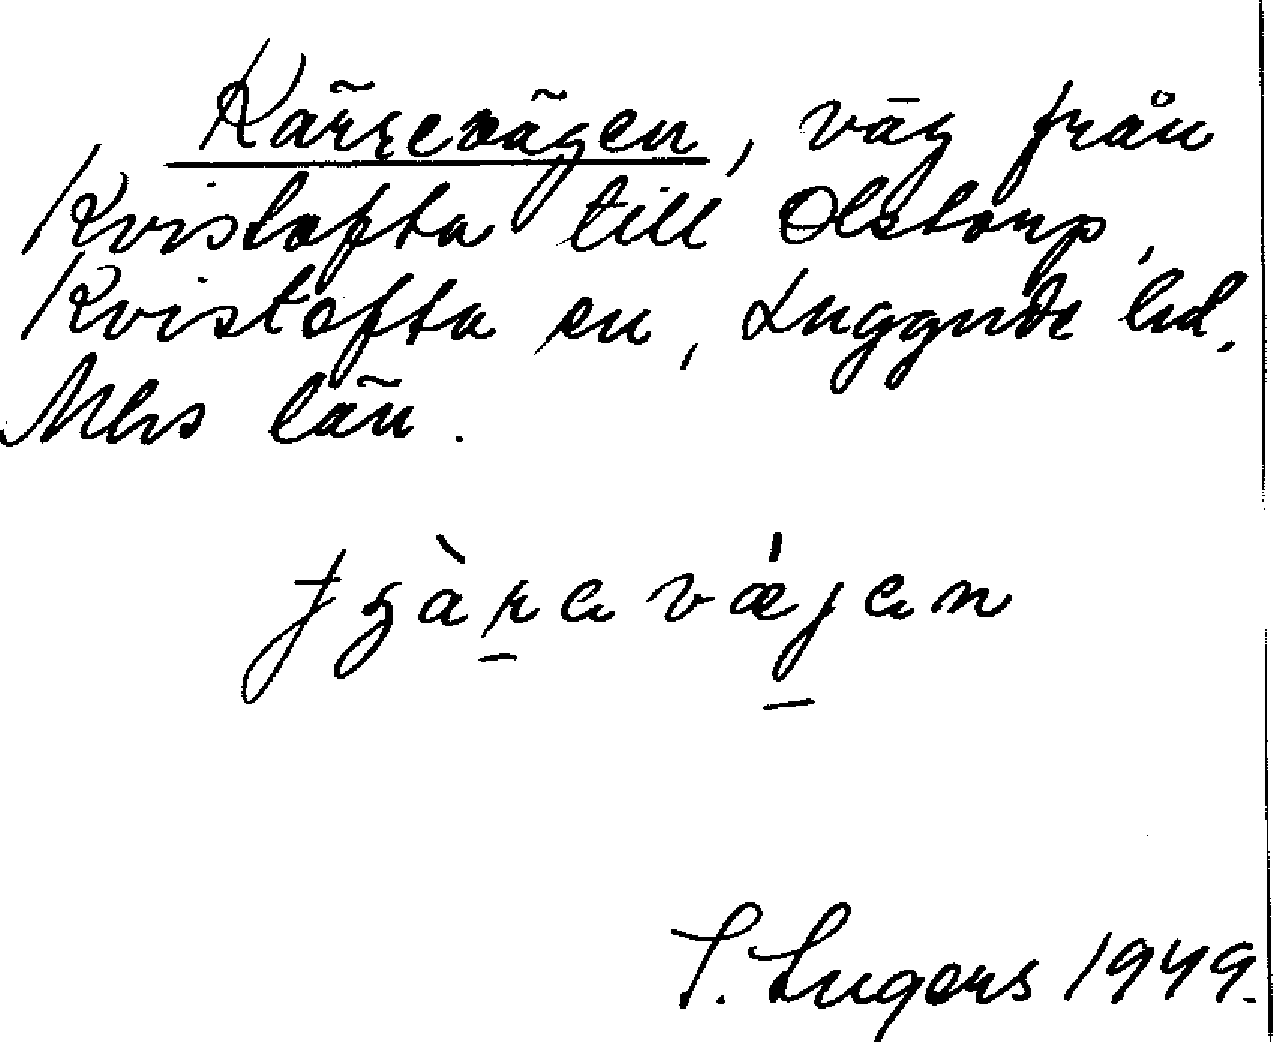 Kärrevägen, väg från
Kvistofta till Olstorp,
Kvistofta sn, Luggude hd.
Mhs län.
J. Ingers 1949.